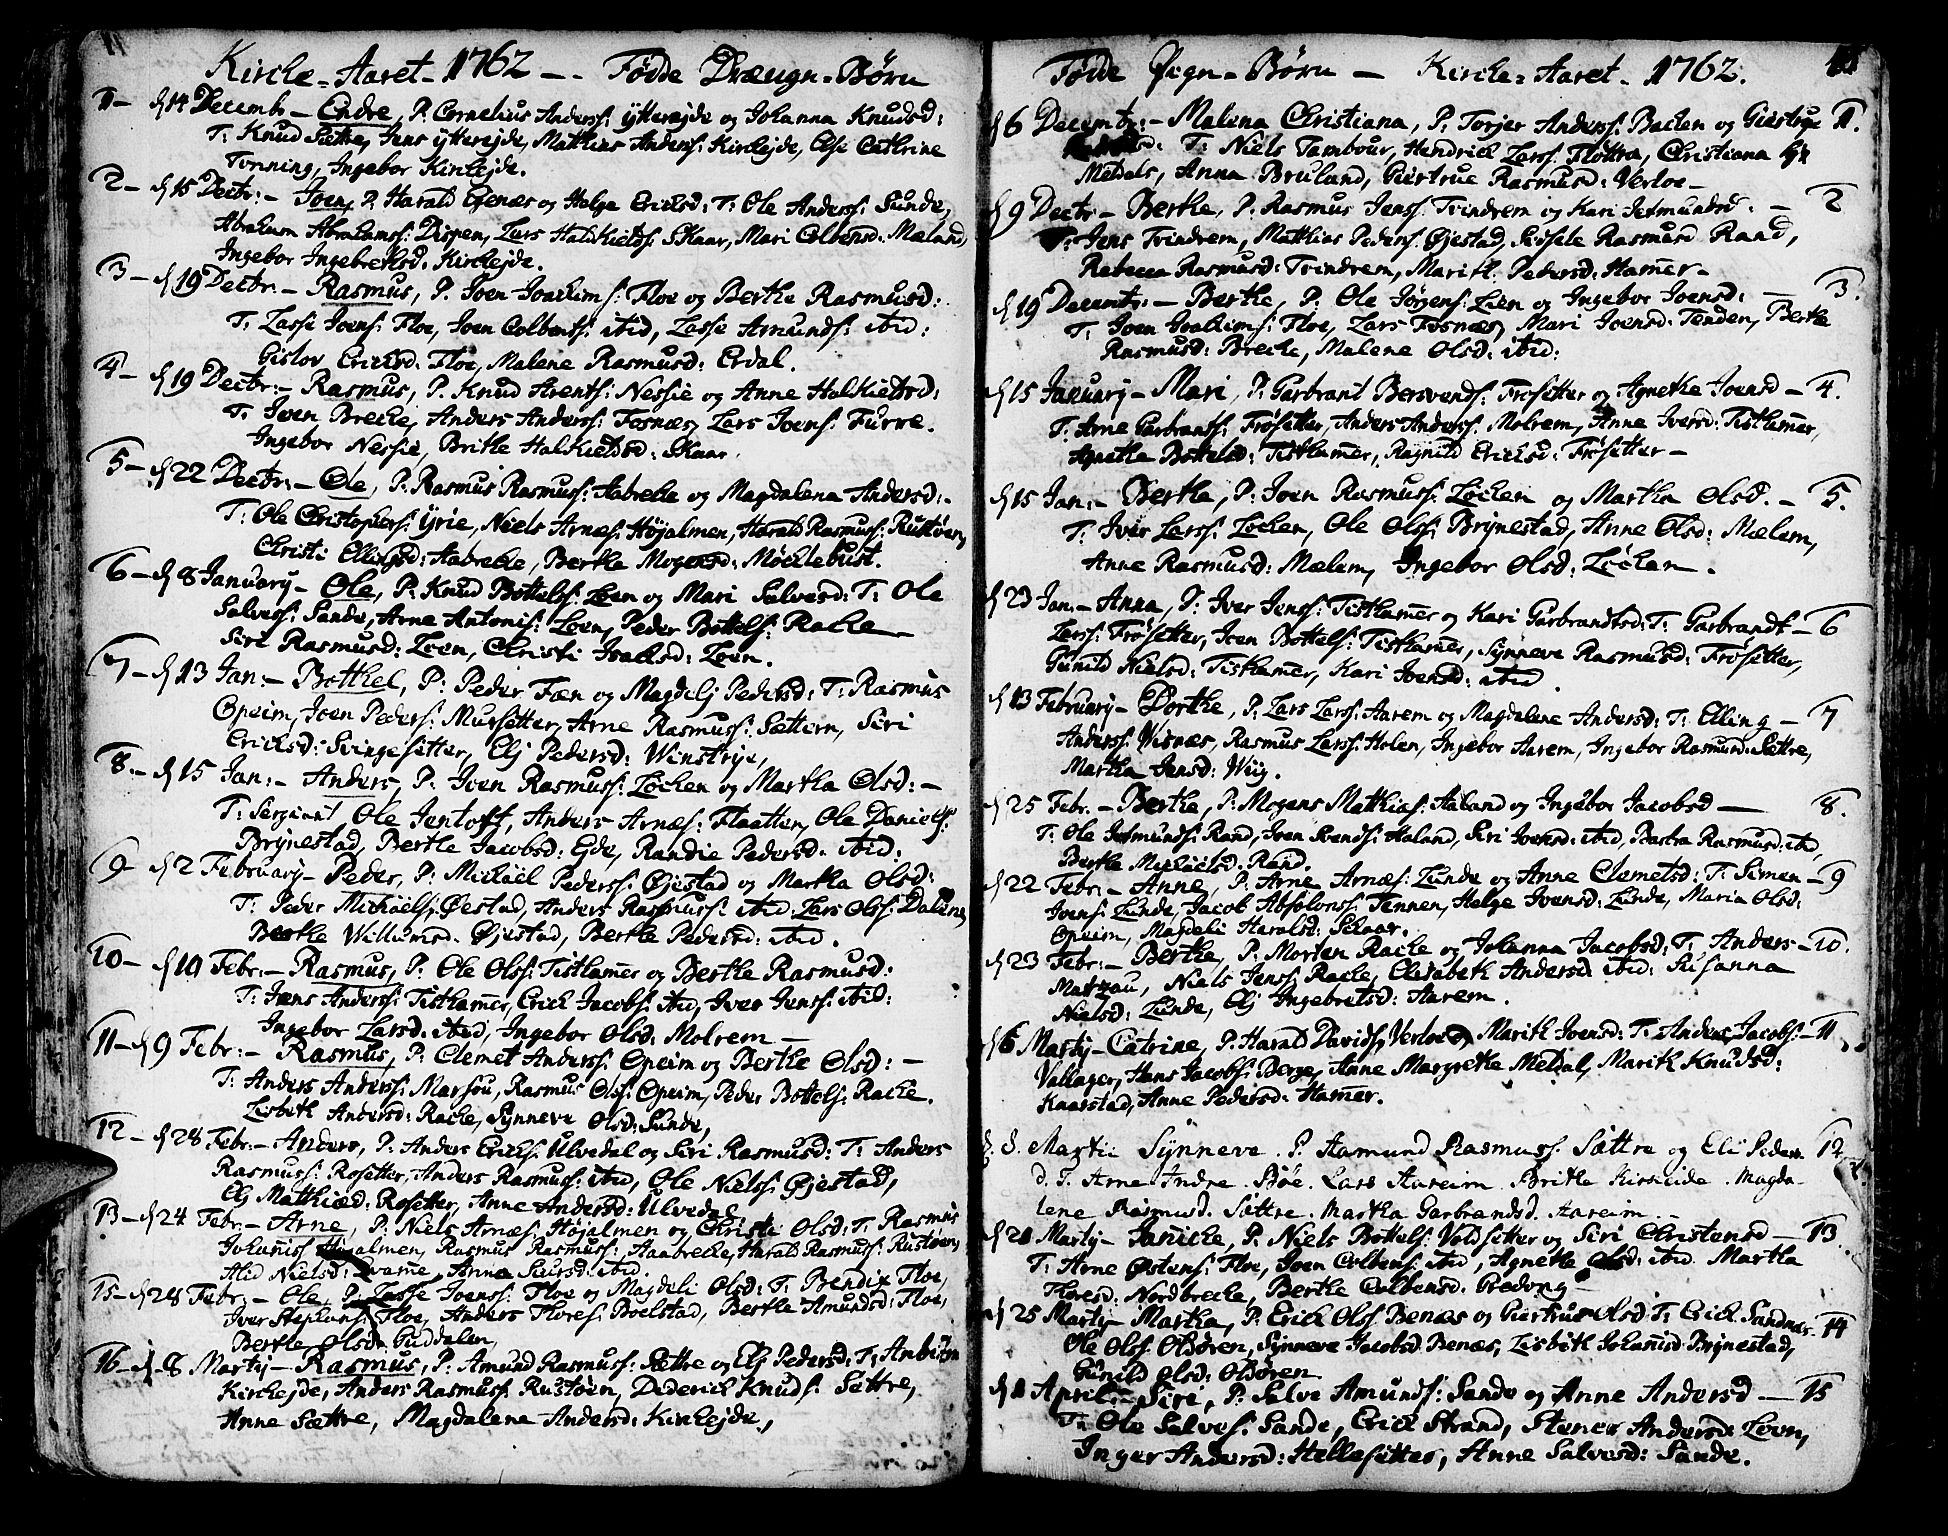 Kirche-Aaret-1762 -- Fødde Drængn-Børn
1- d 14 Decemb- Endre, P: Cornelius Anderss: ÿtterejde og Johanna Knudsd:
T: Knud Sættre, Jens ÿtterejde, Matthias Anderss: Kirkejde, Else Cathrine
Tonning, Ingebor Kirkejde.
2- d 15 Decbr:- Joen, P: Harald Efnæs og Helge Ericksd: T: Ole Anderss: Sunde,
Abraham Abrahamss: Dispen, Lars Halkields: Skaar, Mari Colbensd: Mæland,
Ingebor Ingebretsd: Kirkejde.
3- d 19 Decbr:- Rasmus, P: Joen Joachims: Floe og Berthe Rasmusd:
T: Lasse Joens: Floe, Joen Colbents: ibid, Lasse Amunds: ibid:
Gislov Ericksd: Floe, Malene Rasmusd: Erdal.
4- d 19 Decbr:- Rasmus, P: Knud Arents: Nessie og Anne Halkieldsd:
T: Joen Breche, Anders Anderss: Fosnæs, Lars Joens: Furre.
Ingebor Nessie, Brithe Halkieldsd: Skaar.
5- d 22 Decbr:- Ole, P: Rasmus Rasmuss: Aabrecke og Magdalena Andersd:-
T: Ole Christophers: ÿrie, Niels Arnæs: Højalmen, Harald Rasmuss: Rustøen,
Christi Ellingsd: Aabrecke, Berthe Mogensd: Møcklebust.
6- d 8 January- Ole, P: Knud Bottels: Loen og Mari Salvesd: T: Ole
Salvess: Sande, Arne Antonis: Loen, Peder Bottels: Racke
Siri Rasmusd: Loen, Christi Isacksd: Loen.
7- d 13 Jan:- Bothel, P: Peder Fæn og Magdelj Pedersd: T: Rasmus
Opeim, Joen Peders: Mursetter, Arne Rasmuss: Sættern, Siri
Ericksd: Svingesetter, Elj Pedersd: Winstrÿe,
8.- d 15 Jan:- Anders, P: Joen Rasmuss: Løcken og Martha Olsd:-
T: Sergiant Ole Jentoft, Anders Arnæs: Flaatten, Ole Daniels:
Brÿnestad, Berthe Jacobsd: Ejde, Randie Pedersd: ibid:
9- d 2 February- Peder, P: Michäel Pederss: Øjestad og Martha Olsd:
T: Peder Michaels, Øjestad, Anders Rasmuss: ibid: Lars Olss: Dalene,
Berthe Willumsd: Øjestad, Berthe Pedersd: ibid.
10- d 10 Febr:- Rasmus, P: Ole Olss: Tisthamer og Berthe Rasmusd:
T: Jens Anderss: Tisthamer, Erick Jacobs: ibid, Iver Jenss: ibid:
Ingebor Larsd: ibid, Ingebor Olsd: Molrem-
11- d 9 Febr:- Rasmus, P: Clemet Anderss: Opeim og Berthe Olsd:-
T: Anders Anderss: Marsou, Rasmus Olss: Opeim, Peder Bottels: Racke.
Lisbeth Andersd: Racke, Sÿnneve Olsd: Sunde,
12- d 28 Febr:- Anders, P: Anders Ericks: Ulvedal og Siri Rasmusd: T: Anders
Rasmuss: Rosetter, Anders Rasmuss: ibid, Ole Nielss: Øjestad,
Elj Matthiæd: Rosetter, Anne Andersd: Ulvedal
13- d 24 Febr:- Arne, P: Niels Arnæs: Højalmen og Christi Olsd: T: Rasmus
Johanis: Højalmen, Rasmus Rasmuss: Aabrecke, Harald Rasmuss: Rustøen,
Alid Nielsd: Anna Siursd: ibid.
15- d 28 Febr:- Ole, P: Lasse Joenss: Floe og Magdeli Olsd: T: Bendix Floe,
Iver Stephans: Floe, Anders Thores: Boelstad, Berthe Amundsd: Floe,
Berthe Olsd: Guddalen,
16- d 8 Martij- Rasmus, P: Amund Rasmuss: Sættre og Elj Pedersd: T:
Kirkejde, Anders Rasmuss: Rustøen, Dederich Knuds: Sættre,
Anne Sættre, Magdalene Andersd: Kirkejde,
Fødde Pign-Børn - Kirche-Aaret-1762.
d 6 Decembr:- Malena Christiana, P: Torjer Anderss: Backen og Giertrue 1.
T: Niels Tambour, Hendrick Larss: Flottra, Christiana
Meldals, Anna Bruland, Giertrue Rasmusd: Verloe-
d 9 Decbr- Berthe, P: Rasmus Jenss: Tvindrem og Kari Jetmundsd: - 2
T: Jens Tvindrem, Matthias Pedens: Øjestad, Sidsele Rasmusd Rand,
Rebecca Rasmusd: Tvindrem, Marith Pedersd: Hamer-
d 19 Decembr:- Berthe, P: Ole Jørgens: Lien og Ingebor Joensd: - 3.
T: Joen Joakims: Floe, Lars Fosnæs, Mari Joensd: Tenden, Berthe
Rasmusd: Breche, Malene Olsd: ibid:
d 15 January- Mari, P: Garbrant Bersvends: Frøsetter og Agnethe Joensd- 4.
T: Arne Garbrants: Frøsetter, Anders Anderss: Molrem, Anne Iversd: Tisthamer,
Agnethe Bottelsd: Tisthamer, Ragnild Ericksd: Frøsetter-
d 15 Jan:- Berthe, P: Joen Rasmuss: Løcken og Martha Olsd.- 5.
T: Iver Larss: Løcken, Ole Olss: Brÿnestad, Anne Olsd: Mælem,
Anne Rasmusd: Mælem, Ingebor Olsd: Løcken.
d 23 Jan:- Anna, P: Iver Jenss: Tisthamer og Kari Garbrandtsd: T: Garbrandt- 6
Larss: Frøsetter, Joen Bottels: Tisthamer, Sÿnneve Rasmusd: Frøsetter,
Gunild Nielsd: Tisthamer, Kari Joensd: ibid.
d 13 February- Dorthe, P: Lars Larss: Aarem og Magdalene Andersd: T: Elling- 7
Anderss: Wisnæs, Rasmus Larss: Holen, Ingebor Aarem, Ingebor Rasmusd: Sættre,
Martha Jensd: Wiig.
d 25 Febr.- Berthe, P: Mogens Matthias: Aaland og Ingebor Jacobsd- 8.
T: Ole Jetmunds: Rand, Joen Svends: Aaland, Siri Joensd: ibid, Rasmusd: ibid,
Berthe Michaelsd: Rand.
d 22 Febr:- Anne, P: Arne Arnæs: Lunde og Anne Clemetsd: T: Simen- 9
Joens: Lunde, Jacob Absolonss: Tennen, Helge Ivensd: Lunde, Maria Olsd:
Opeim, Magdeli Haralsd: Skaar.
d 23 Febr:- Berthe, P: Morten Racke og Johanna Jacobsd: T: Anders- 10.
Marzau, Niels Jens: Racke, Elisabeth Andersd ibid: Susanna
Nielsd: Lunde, Elj Ingebretsd: Aarem.
d 6 Martij- Catrine, P: Harald Davids, Verloe og Marith Joensd: T: Anders Jacobs:- 11
Vallager, Hans Jacobs: Berge, Anne Margrethe Meldal, Marith Knudsd:
Knarstad, Anne Pedersd: Hamer.
d. 8. Martii Sÿnneve. P. Aamund Rasmuss. Sættre og Eli Peders 12
d. T. Arne Andre. Bøe. Lars Aareim. Brithe Kirkeide. Magda-
lene Rasmusd. Sættre. Martha Garbrandsd. Aareim.-
d 21 Martij- Janicke, P: Niels Bottels: Voldsetter og Siri Christensd- 13
T: Arne Østens: Floe, Joen Colbens: ibid, Agnethe Olsd: ibid Martha
Thoresd: Nordbrecke, Berthe Colbensd: Bredvng-
d 25 Martij- Martha, P: Erick Olss Benæs og Giertrue Olsd: T: Erick Sandnæs- 14
Ole Olss Oldøren, Sÿnneve Jacobsd: Benæs, Lisbeth Johanisd: Brÿnestad,
Gunild Olsd: Oldøren
d 1 April:- Siri, P: Salve Amunds: Sande og Anne Andersd- 15
T: Ole Salves: Sande, Erick Strand, Stener Andersd: Loen,
Inger Andersd: Hellesetter, Anne Salvesd: Sande.